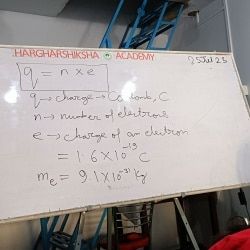 HARGHARSHIKSHA ACADEMY
25 Jul 25
q = n × e
q → charge → Coulomb, C
n → number of electrons
e → charge of an electron
= 1.6 × 10⁻¹⁹ C
mₑ = 9.1 × 10⁻³¹ kg